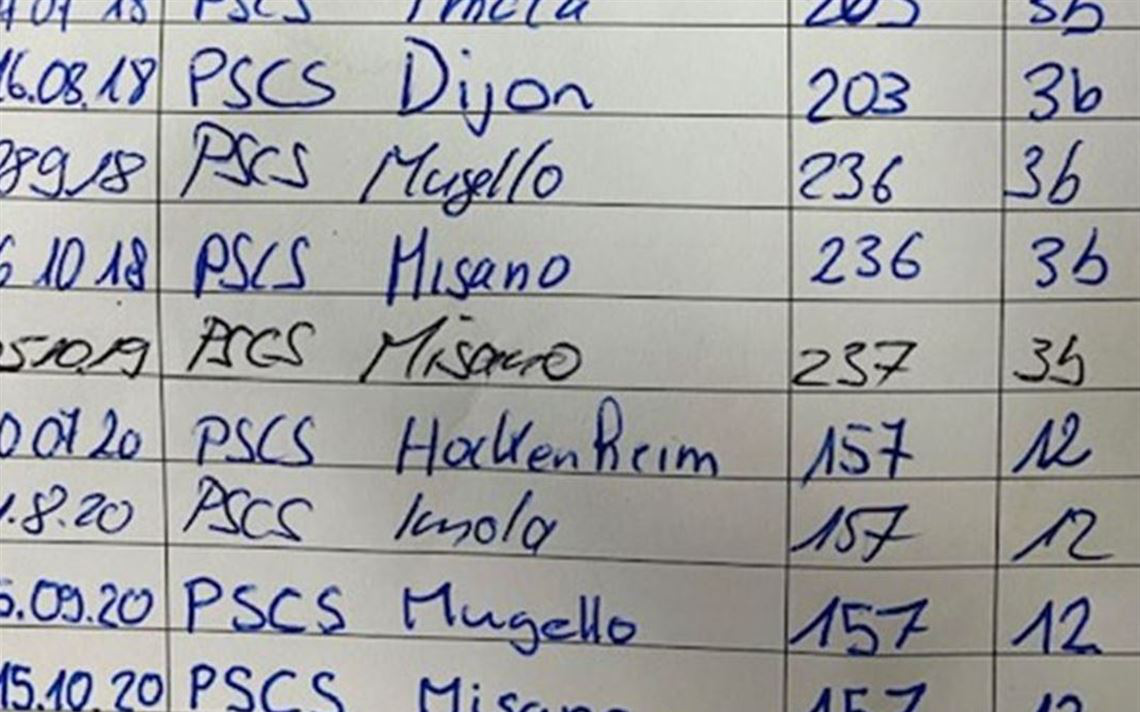 PSCS 203 3b
16.08.18 PSCS Dijon 203 3b
289.18 PSCS Mugello 236 3b
6 10 18 PSCS Misano 236 3b
05.10.19 PSCS Misano 237 3b
0 07 20 PSCS Hockenheim 157 12
1.8.20 PSCS Imola 157 12
5.09.20 PSCS Mugello 157 12
15.10.20 PSCS Misano 157 12